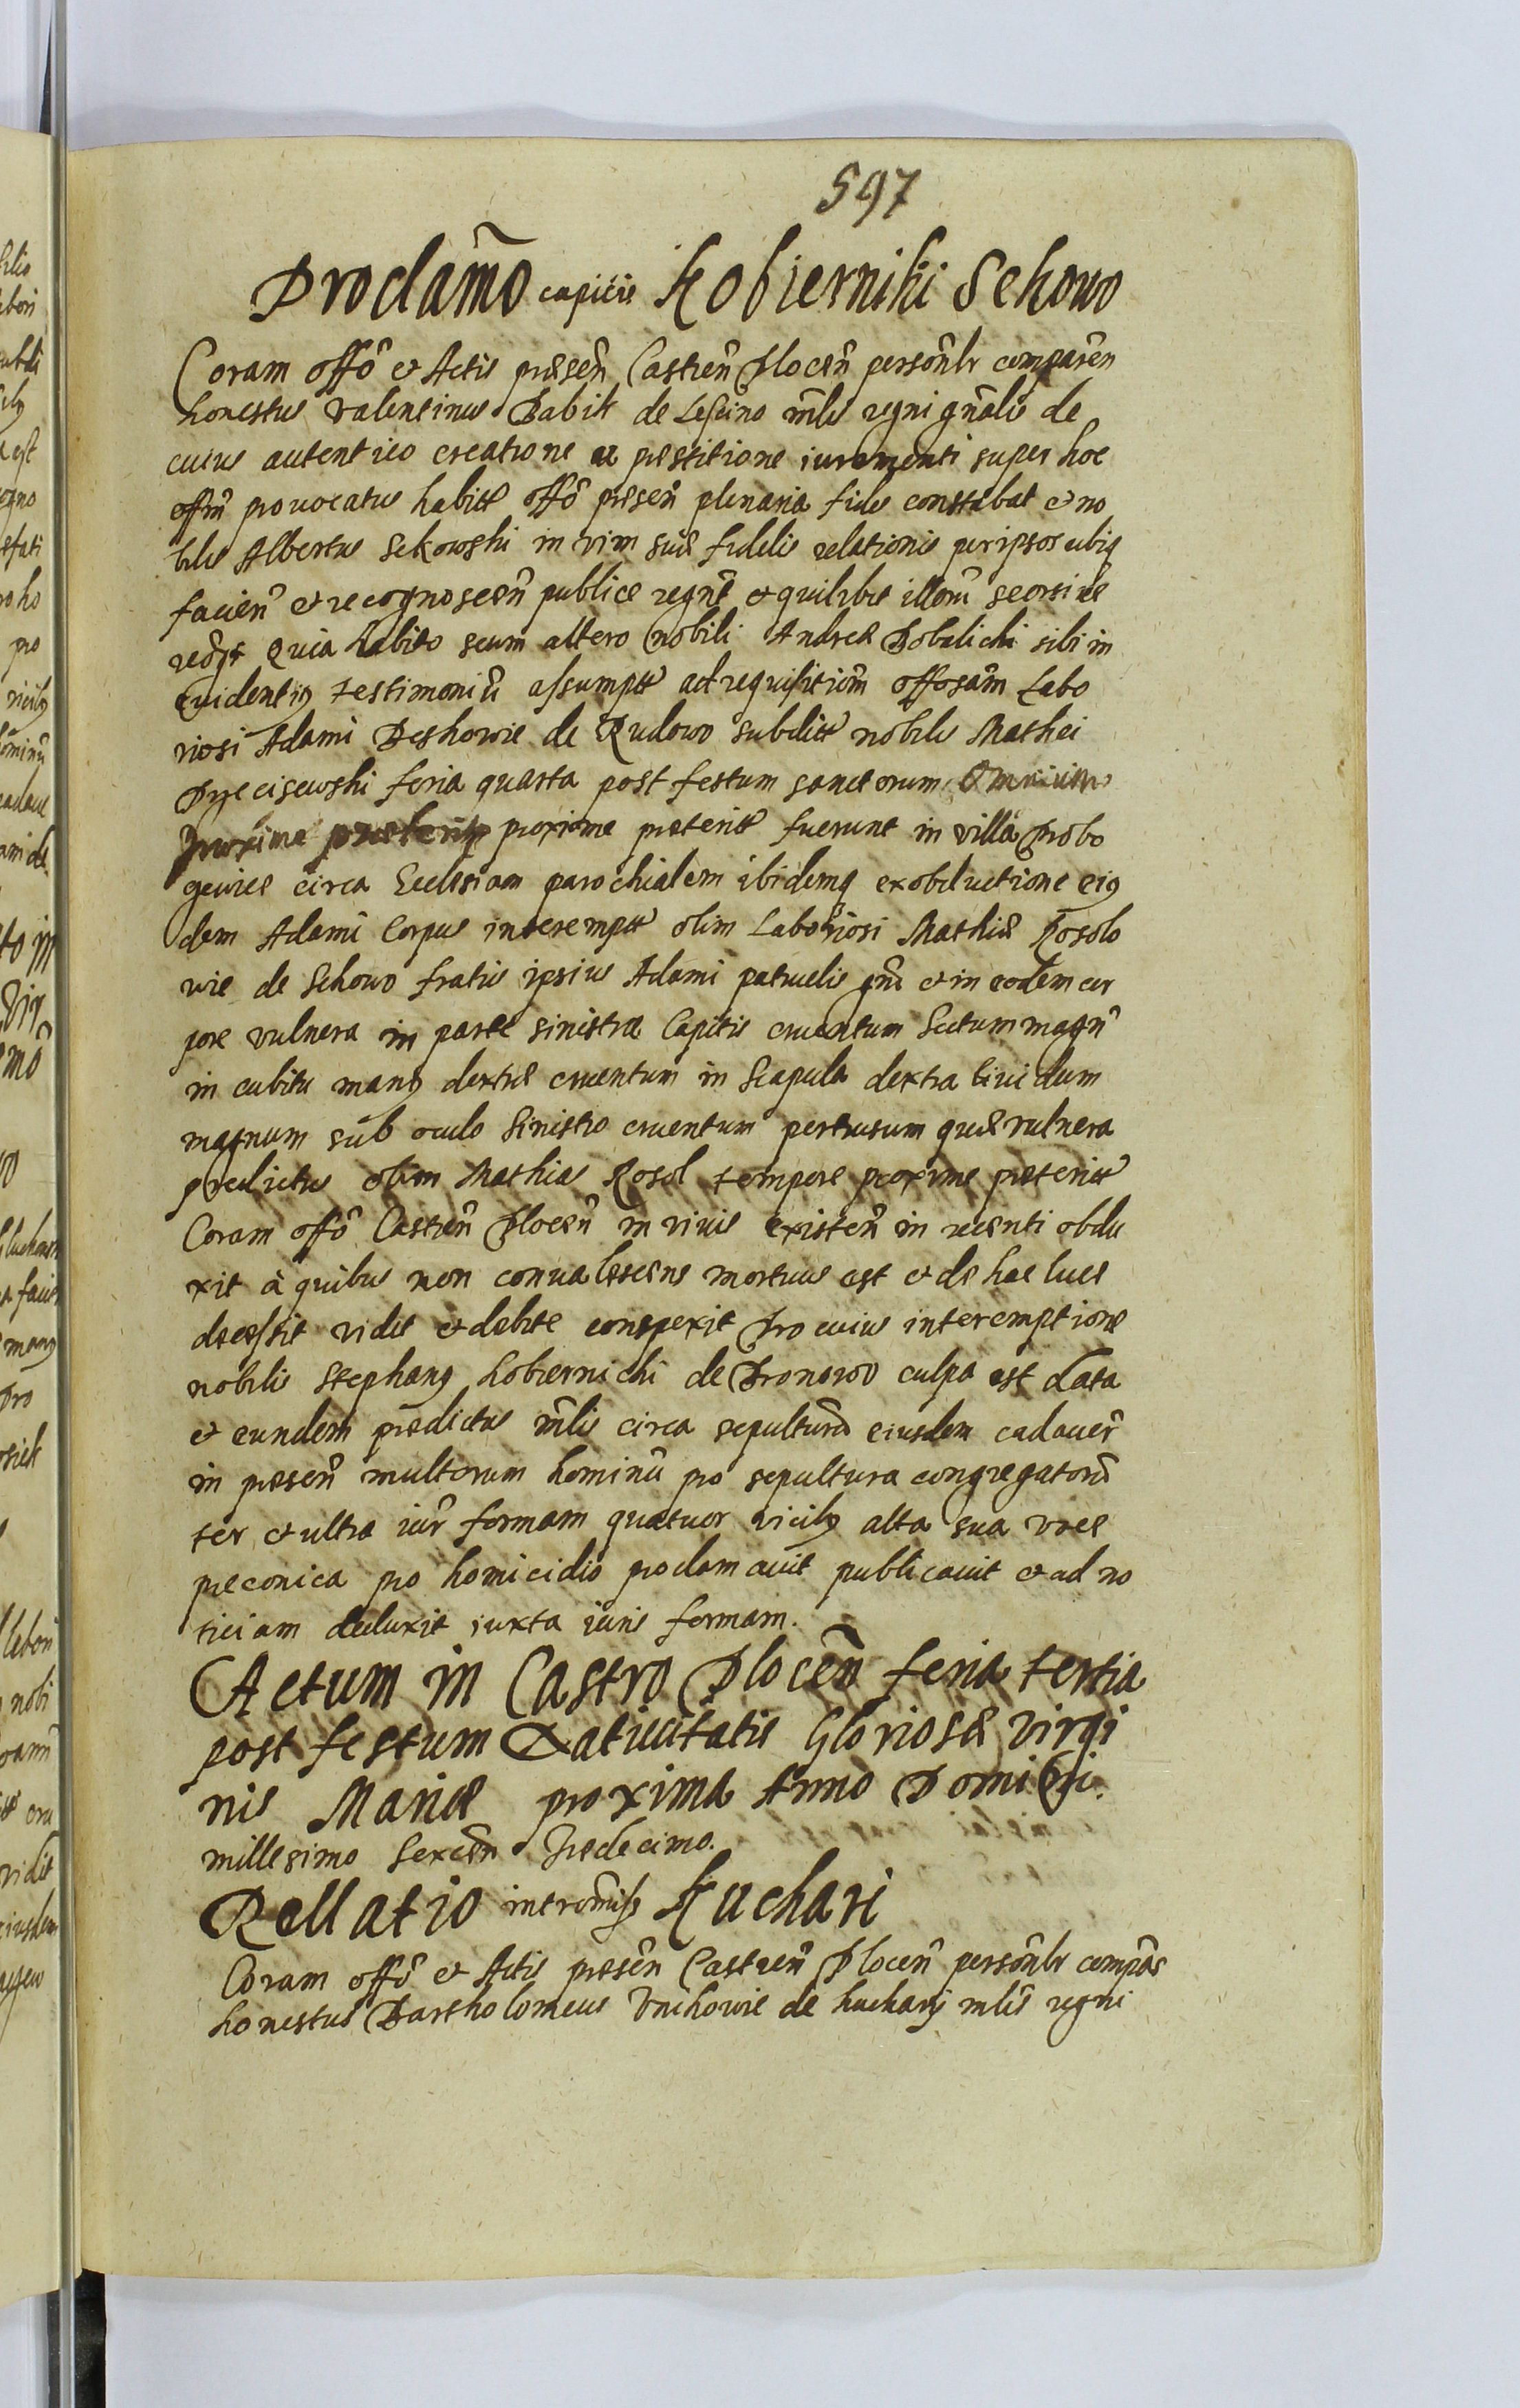 597
Proclamo capitis Kobierniki Sekowo
Coram offō et Actis præsen Castren Plocen personlr comparen
honestus Valentinus Babik de Lescino mlis regni gnalis de
cuius autentico creatione ac præstitione iuramenti super hoc
offm prouocatus habitt offō præsen plenaria fides constabat et no
bilis Albertus Sekowski in vim suæ fidelis relationis per ipsos ubiq
facien et recognoscen publice regnt et quilibet illorū seorsiue
recogt Quia habito secum altero nobili Andrea Bobelicki sibi in
euidentius testimoniū assumptt ad requisitiom offosam Labo
riosi Adami Peskowic de Rudowo subditt nobilis Mathei
Dzecisewski feria quarta post festum sanctorum Omnium
proxime præterit proxime præteritt fuerunt in villa Probo
sewice circa Ecclesiam parochialem ibidemq ex obductione eius
dem Adami Corpus interemptt olim Laboriosi Mathiæ Rosolo
wic de Sekowo fratris ipsius Adami patruelis gni et in eodem cor
pore vulnera in parte sinistra Capitis cruentum Sectum magn
in cubitu manus dextræ cruentum in Scapula dextra liuidum
magnum sub oculo Sinistro cruentum pertusum quæ vulnera
prædictus olim Mathias Rosol tempore proxime præteritt
Coram offō Castren Plocen in viuis existen in recenti obdu
xit à quibus non conualescens mortuus est et de hac luce
decessit vidit et debite conspexit Pro cuius interemptione
nobilis Stephanus kobiernicki de Bronowo culpa est data
et eundem prædictus mlis circa sepulturā eiusdem cadauer
in præsen multorum hominū pro sepultura congregatorū
ter et ultra iur formam quatuor vicibus alta sua voce
preconica pro homicidio proclamauit publicauit et ad no
ticiam deduxit iuxta iuris formam.
Actum in Castro Plocen feria tertia
post festum Natiuitatis Gloriosæ Virgi
nis Mariæ proxima Anno Domini
millesimo Sexcen Tredecimo.
Rellatio intromiss Kuchari
Coram offō et Actis præsen Castren Plocen personlr compās
honestus Bartholomeus Vnikowic de kucharj mlis regni